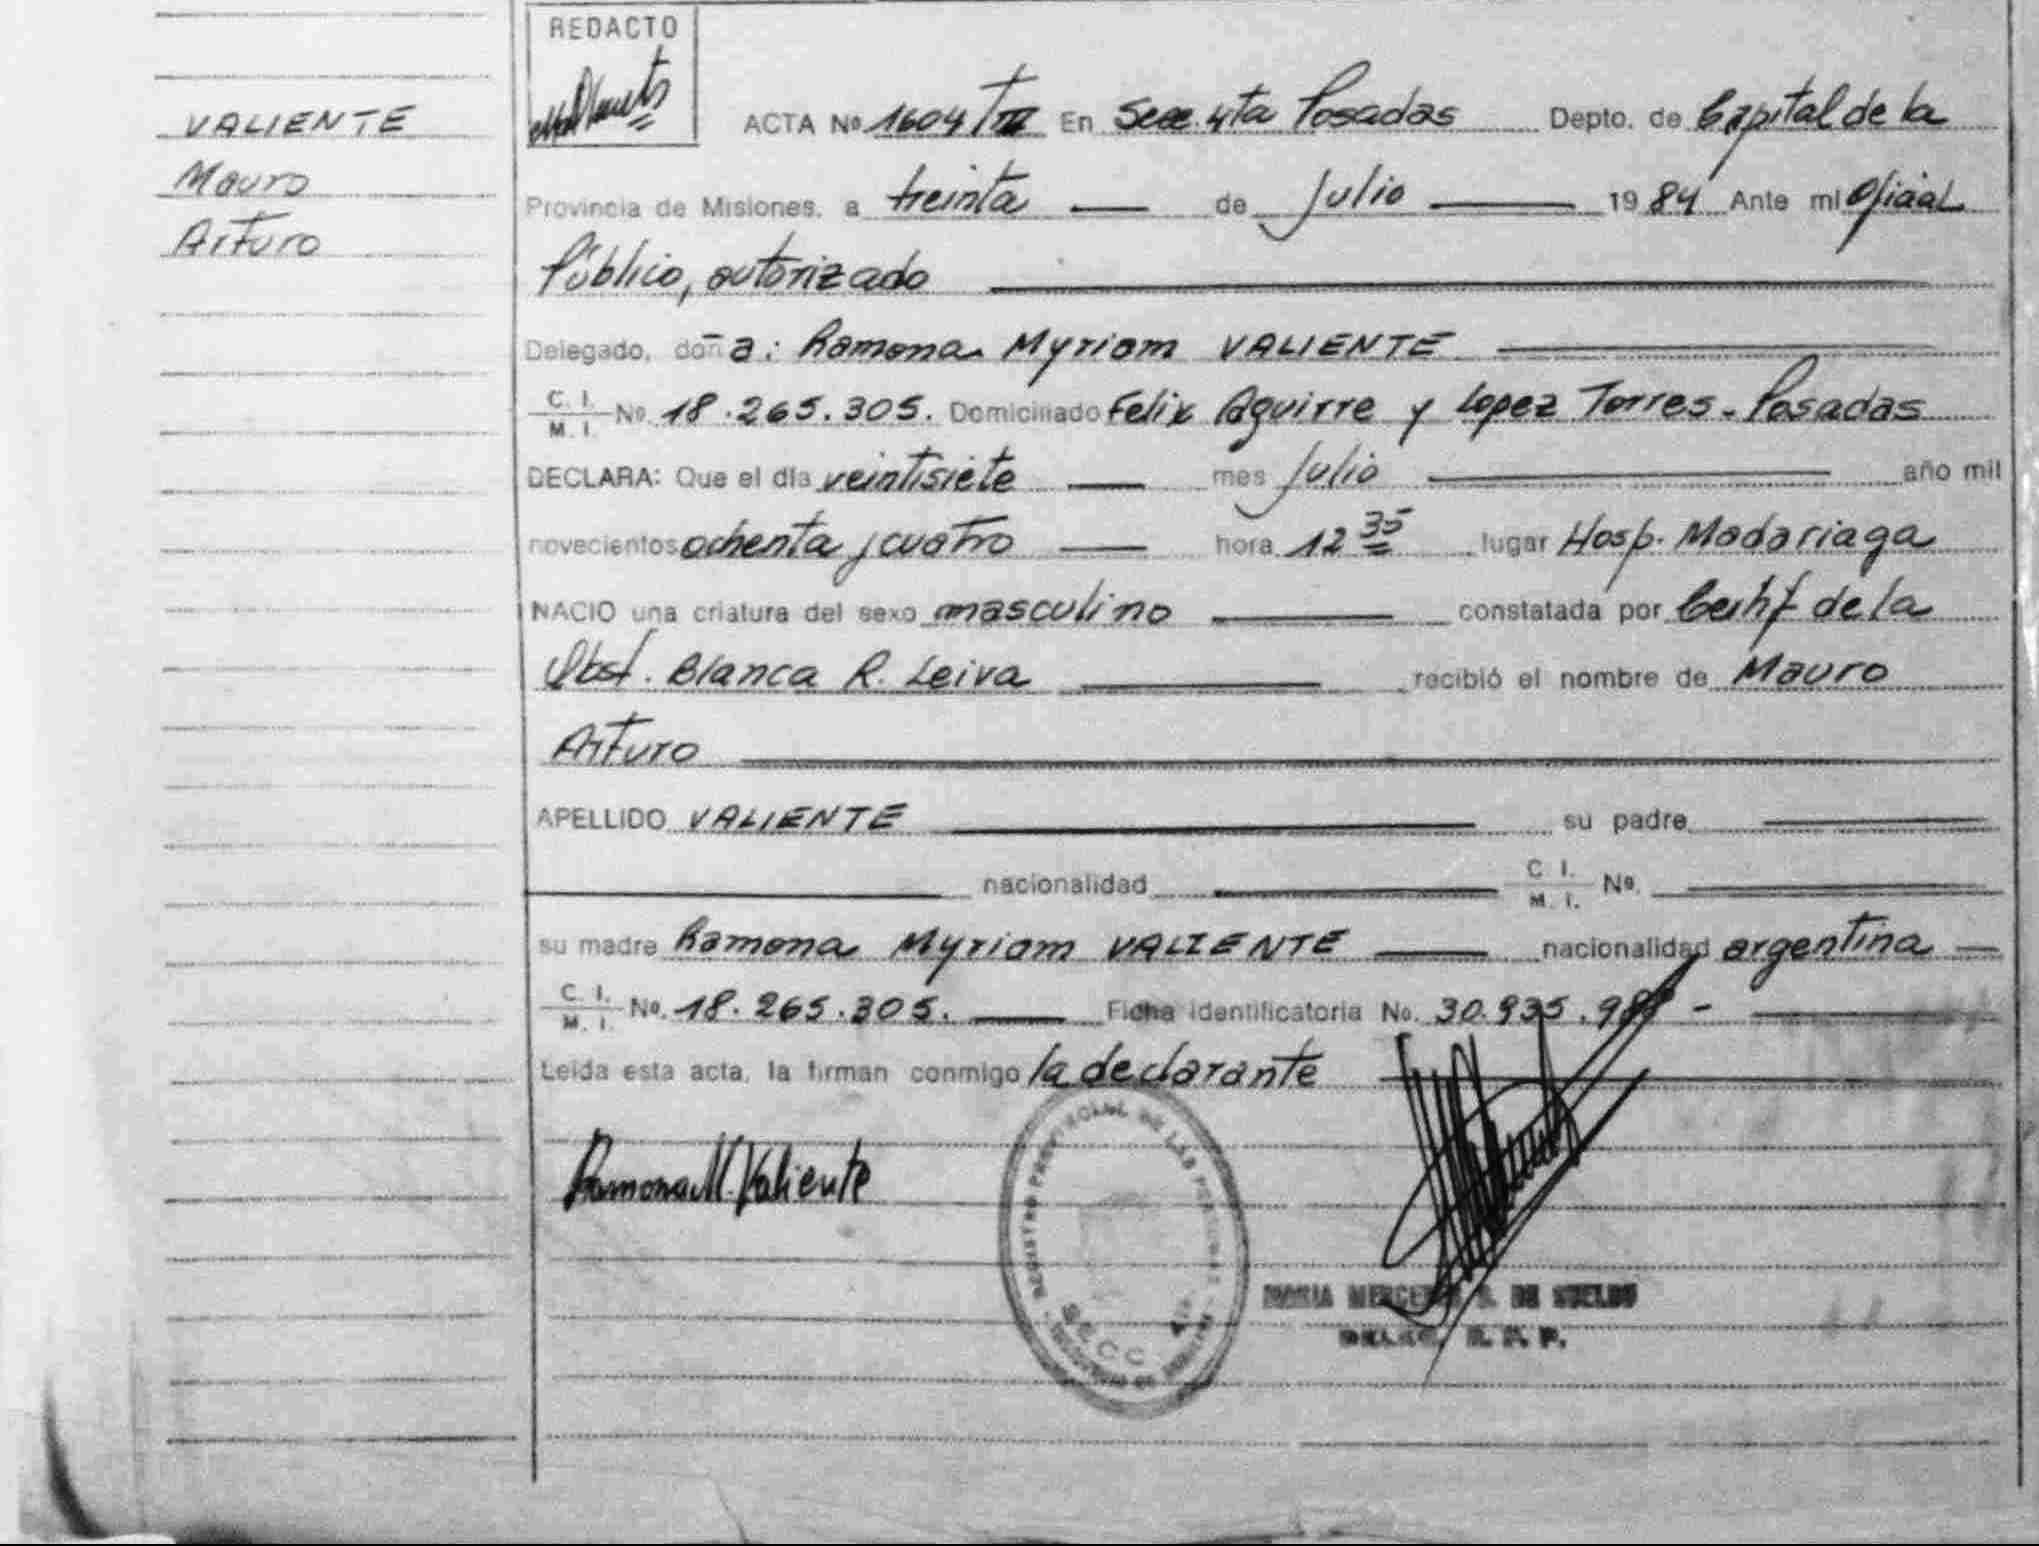 VALIENTE
Mauro
Arturo
REDACTO
ACTA Nº 1604/TIII En Secc. 4ta Posadas Depto. de Capital de la
Provincia de Misiones, a treinta de Julio 1984 Ante mi Oficial
Público, autorizado
Delegado, doña: Ramona Myriam VALIENTE
C. I. M. I. Nº 18.265.305. Domiciliado Felix Aguirre y Lopez Torres - Posadas
DECLARA: Que el día veintisiete mes Julio año mil
novecientos ochenta y cuatro hora 12 35 lugar Hosp. Madariaga
NACIO una criatura del sexo masculino constatada por Certif de la
Obst. Blanca R. Leiva recibió el nombre de Mauro
Arturo
APELLIDO VALIENTE su padre
nacionalidad C I. M. I. Nº.
su madre Ramona Myriam VALIENTE nacionalidad argentina
C. I. M. I. Nº. 18.265.305. Ficha identificatoria No. 30.935.98 -
Leída esta acta, la firman conmigo la declarante
Ramona M. Valiente
REGISTRO PROVINCIAL DE LAS PERSONAS
SECC 4ta
MARIA MERCEDES DE SUELDO
DELEG. R. P. P.